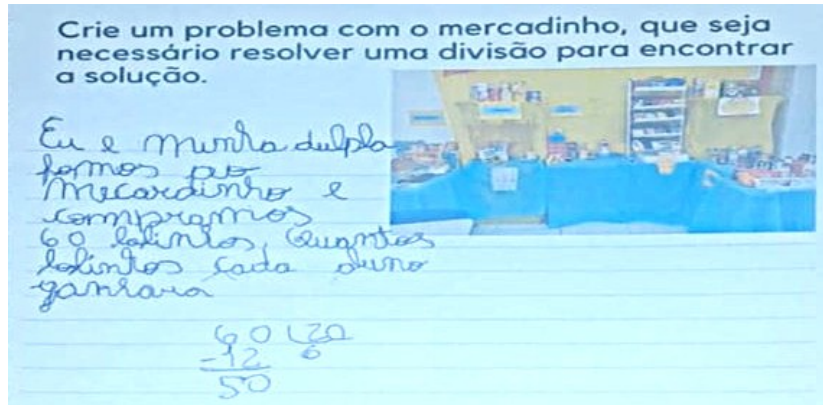 Crie um problema com o mercadinho, que seja
necessário resolver uma divisão para encontrar
a solução.
Eu e minha dulpla
fomos po
mecardinho e
compramos
60 bolinhos, Quantos
bolinhos cada aluno
ganhara
60 20
-12 6
50